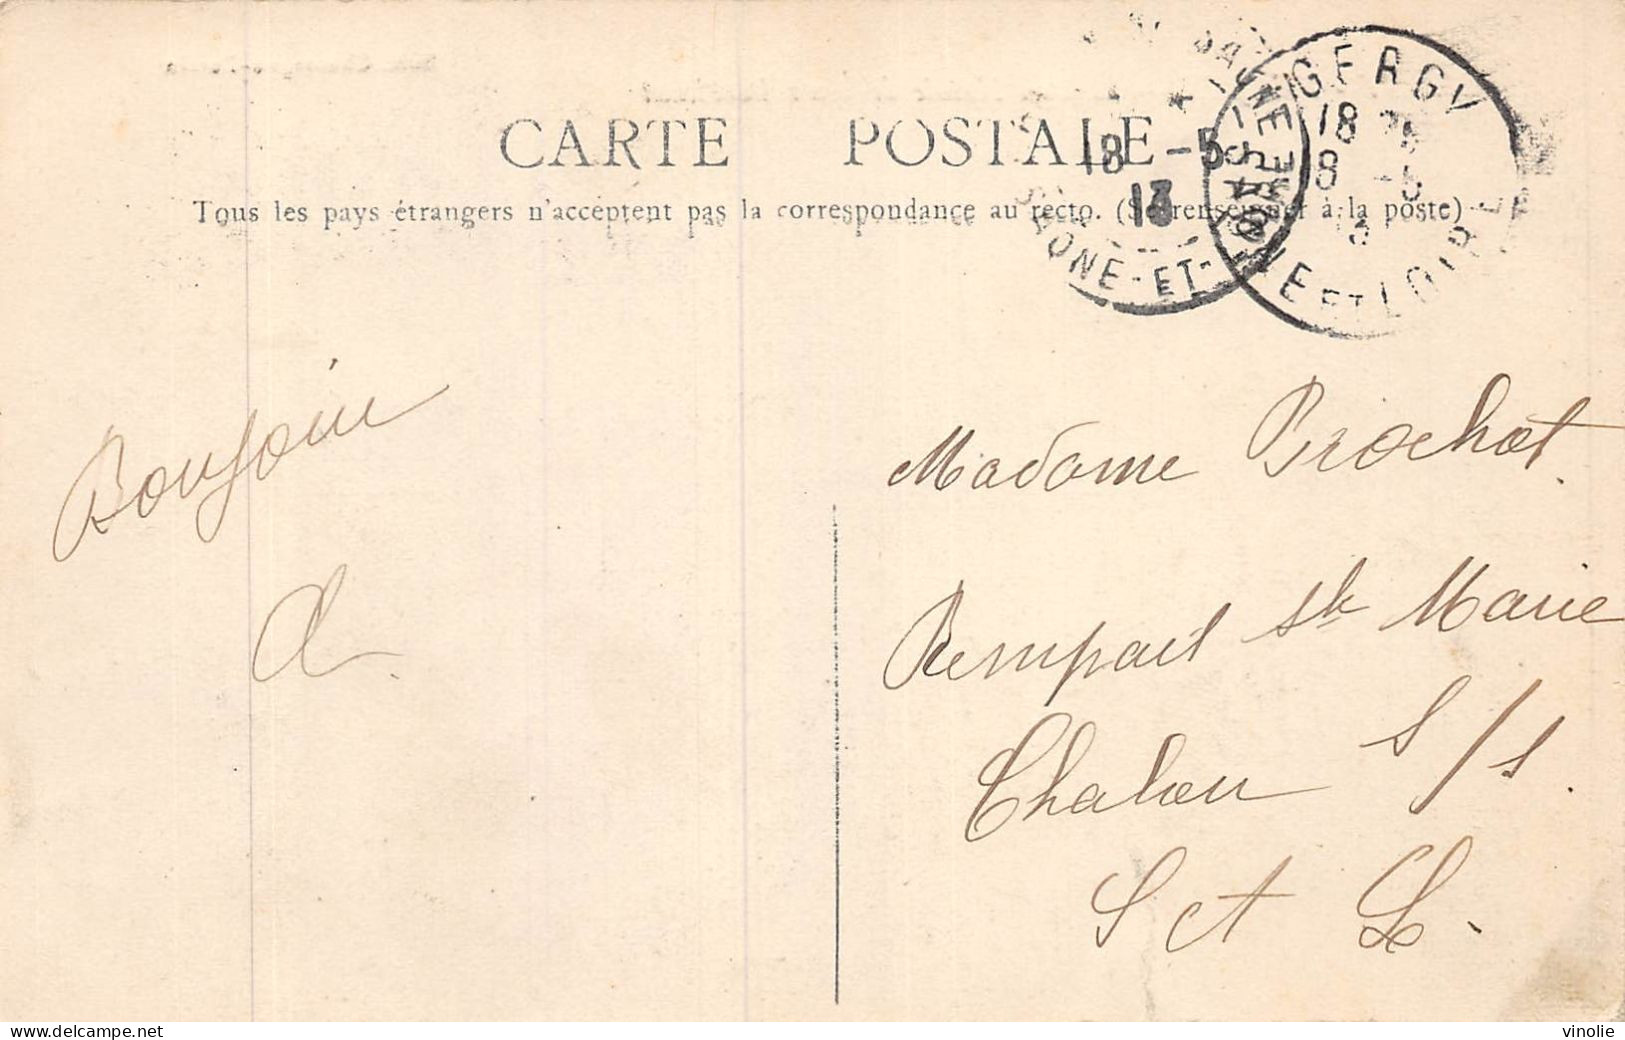 CARTE POSTALE
Tous les pays étrangers n'acceptent pas la correspondance au recto. (Se renseigner à la poste)
GERGY
18
8 -5
SAONE ET LOIRE
18 -5
13
SAONE-ET-LOIRE
Bonjour
Madame Brochot.
Rempart Ste Marie
Chalon S/S.
S et L.
delcampe.net
vinolie